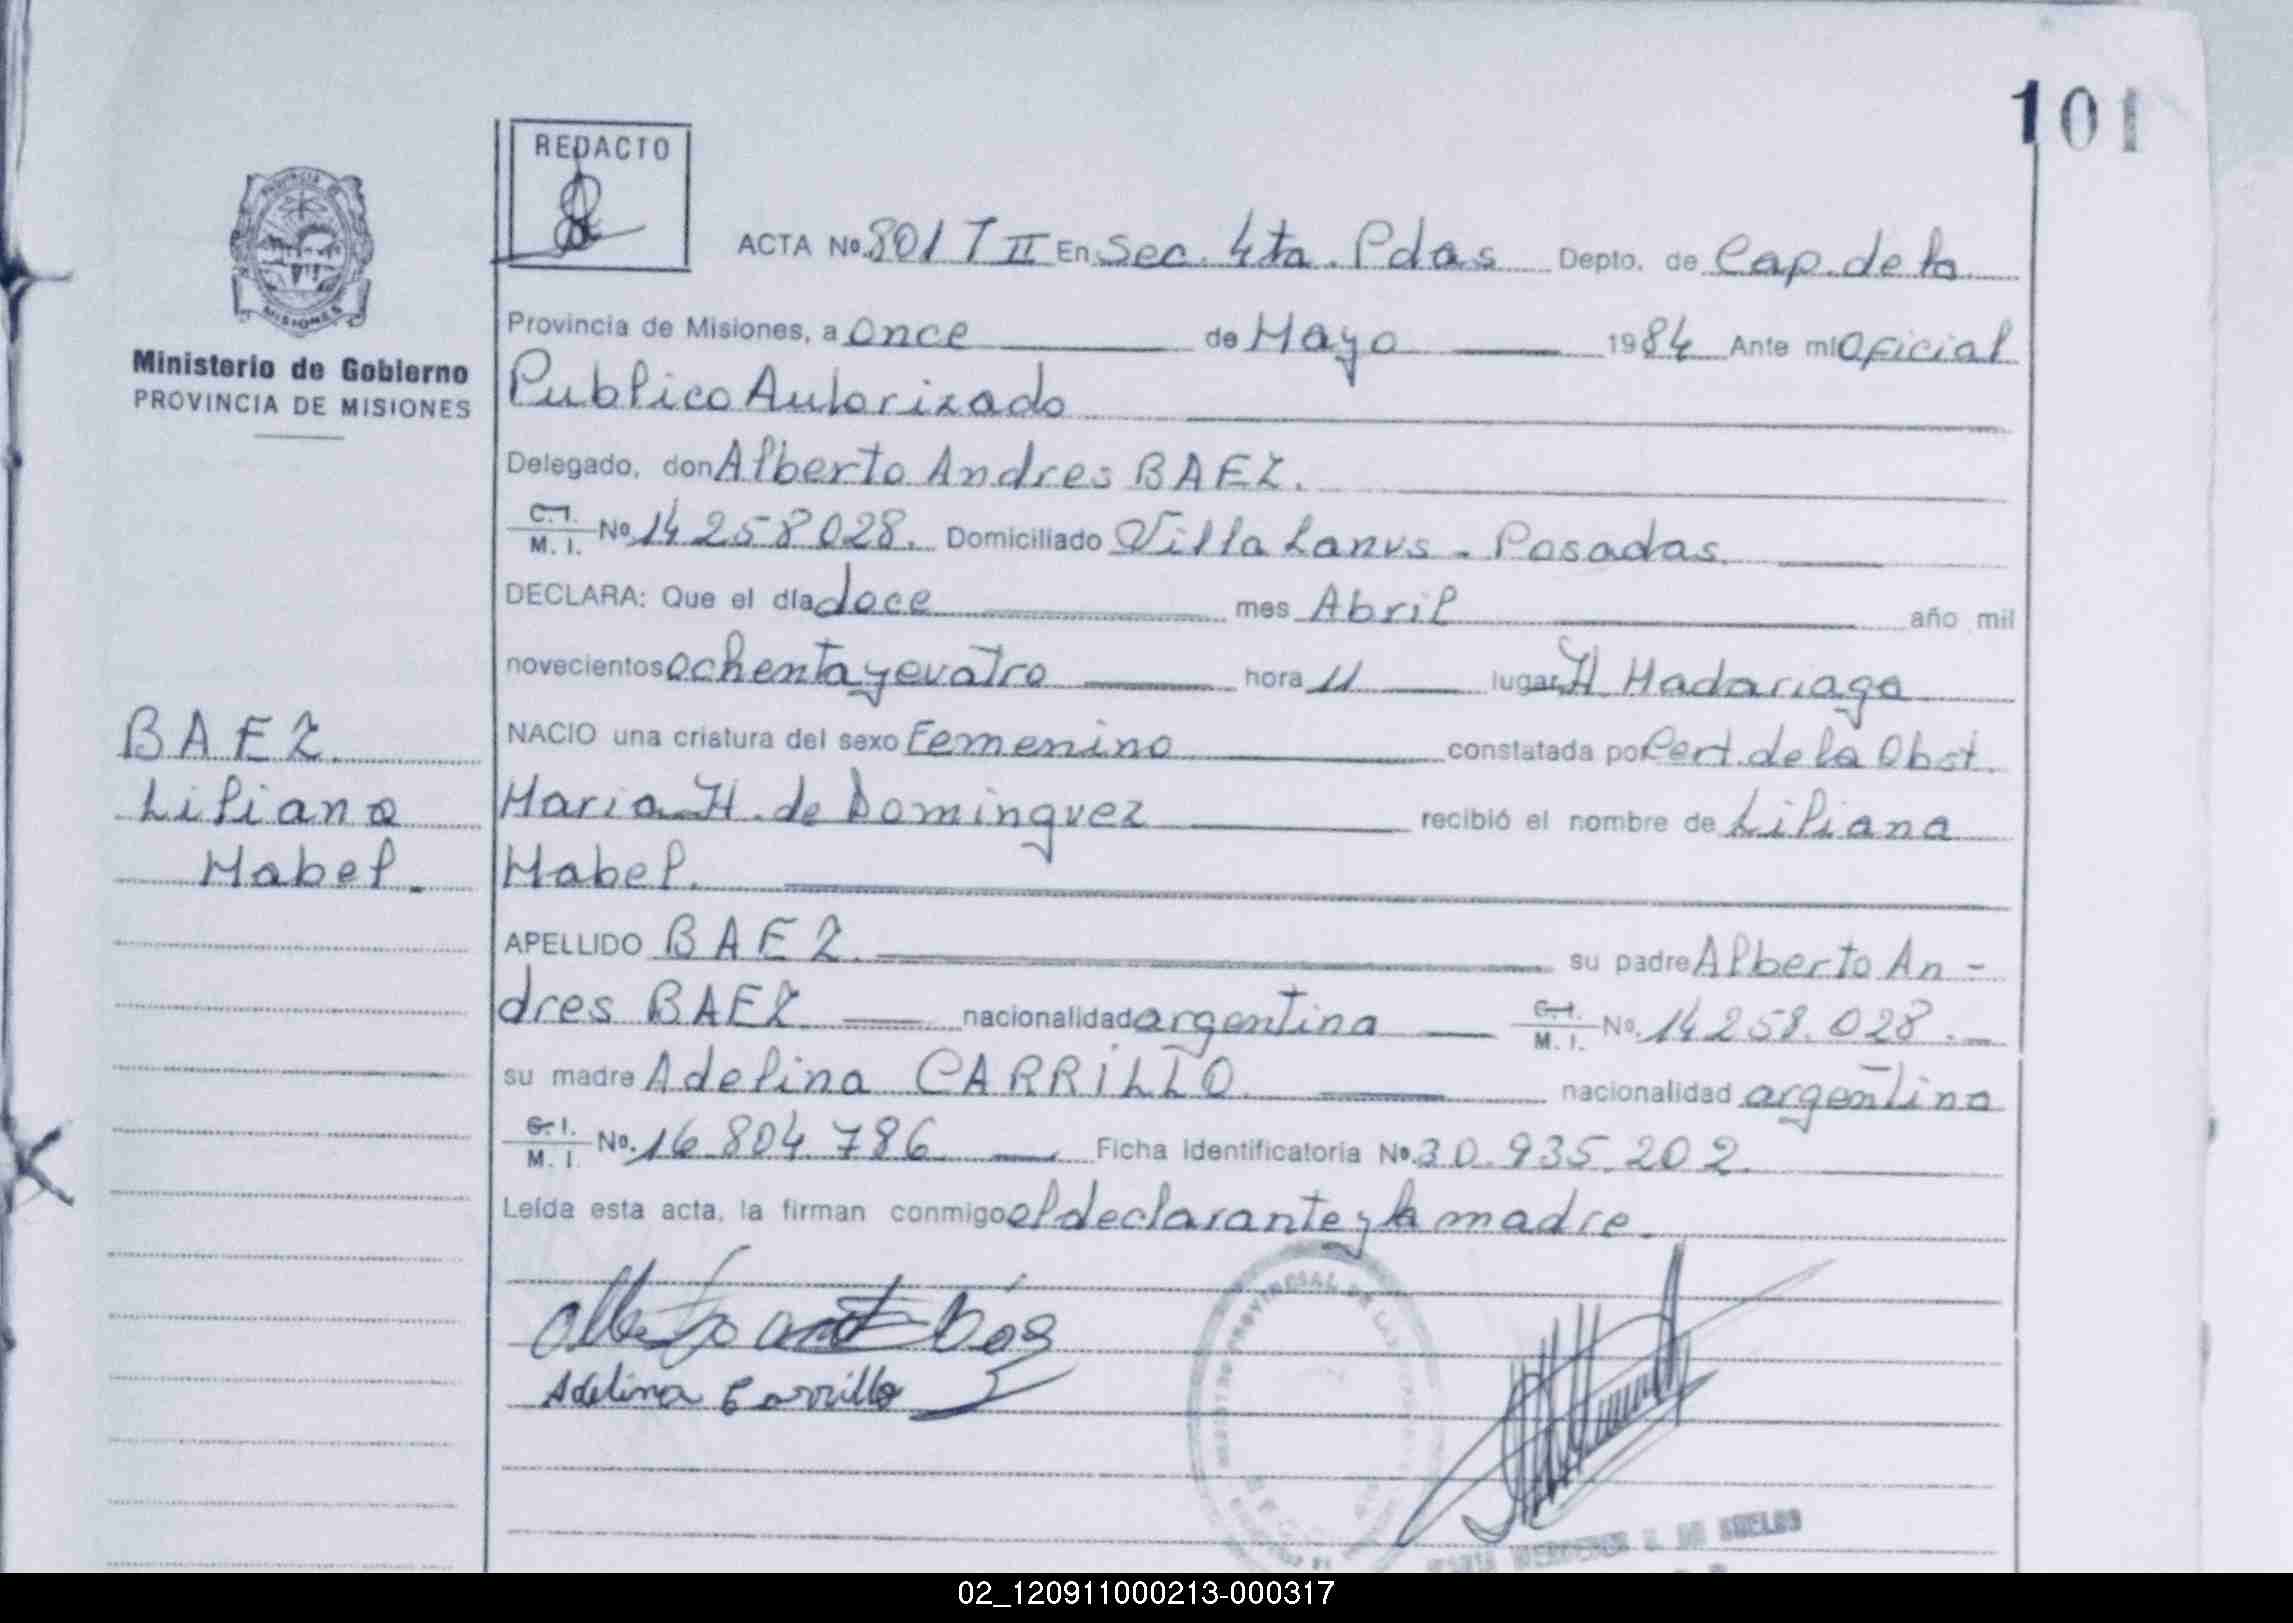 101
REDACTO
ACTA Nº 801 T II En Sec. 4ta. Pdas Depto. de Cap. de la
Provincia de Misiones, a once de Mayo 1984 Ante mi Oficial
Publico Autorizado
Ministerio de Gobierno
PROVINCIA DE MISIONES
Delegado, don Alberto Andres BAEZ.
C.I. M. I. Nº 14 258 028. Domiciliado Villa Lanus - Posadas.
DECLARA: Que el día doce mes Abril año mil
novecientos ochenta y cuatro hora 11 lugar H. Madariaga
BAEZ
Liliana
Mabel.
NACIO una criatura del sexo Femenino constatada por Cert. de la Obst.
Maria H. de Dominguez recibió el nombre de Liliana
Mabel.
APELLIDO BAEZ. su padre Alberto An-
dres BAEZ nacionalidad argentina C.I. M. I. No. 14 258. 028.
su madre Adelina CARRILLO. nacionalidad argentina
C.I. M. I. No. 16 804 786 Ficha Identificatoria Nº. 30.935.202.
Leída esta acta, la firman conmigo el declarante y la madre.
Adelina Carrillo
02_120911000213-000317